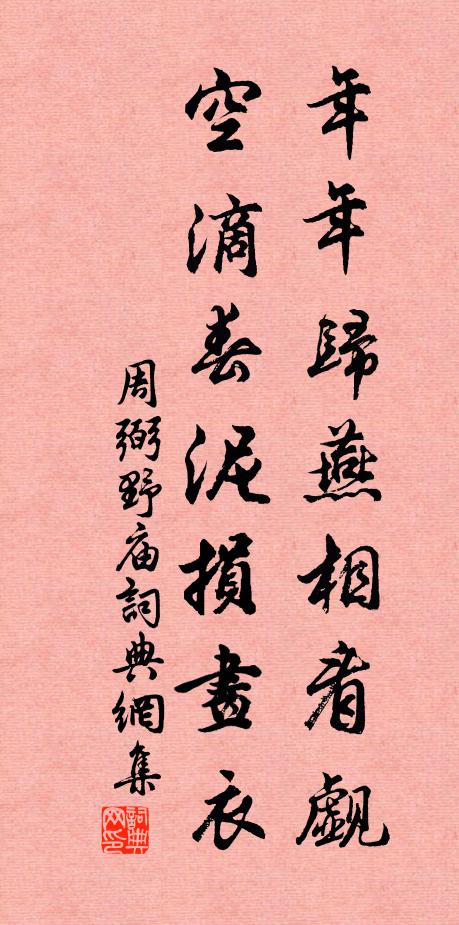 年年歸燕相看覷
空滴春泥損畫衣
周弼野庙詞典網集
詞典
网印